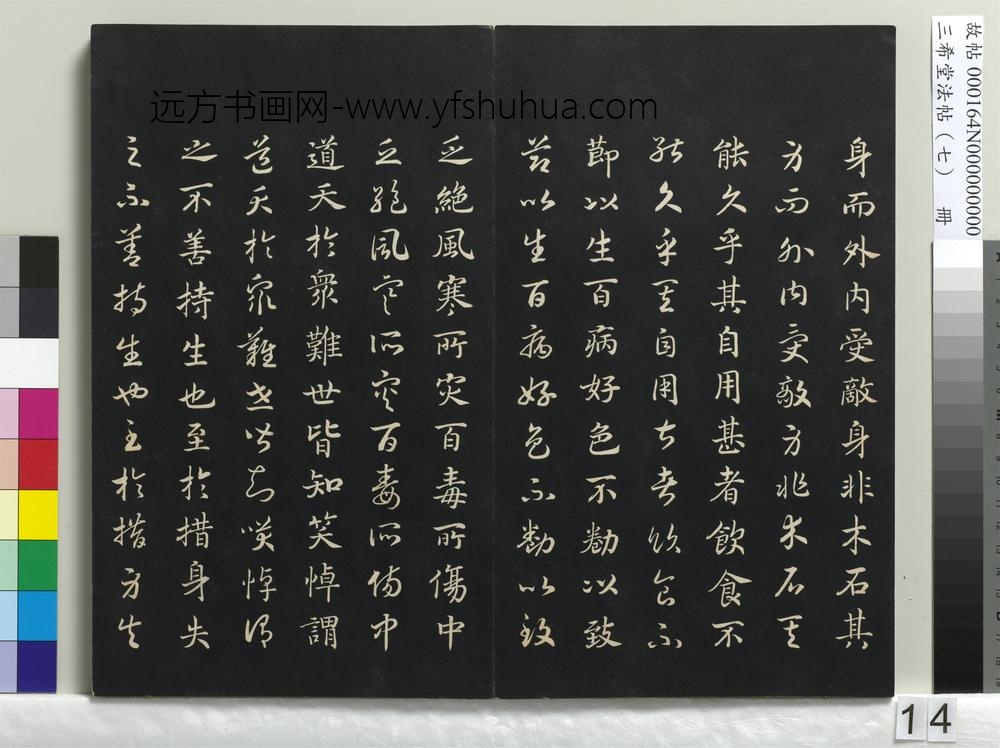 身而外内受敵身非木石其
身而外内受敵身非木石其
能久乎其自用甚者飲食不
能久乎其自用甚者飲食不
節以生百病好色不勌以致
節以生百病好色不勌以致
乏絶風寒所灾百毒所傷中
乏絶風寒所灾百毒所傷中
道夭於衆難世皆知笑悼謂
道夭於衆難世皆知笑悼謂
之不善持生也至於措身失
之不善持生也至於措身失
远方书画网-www.yfshuhua.com
故帖 000164N000000000
三希堂法帖（七） 冊
14